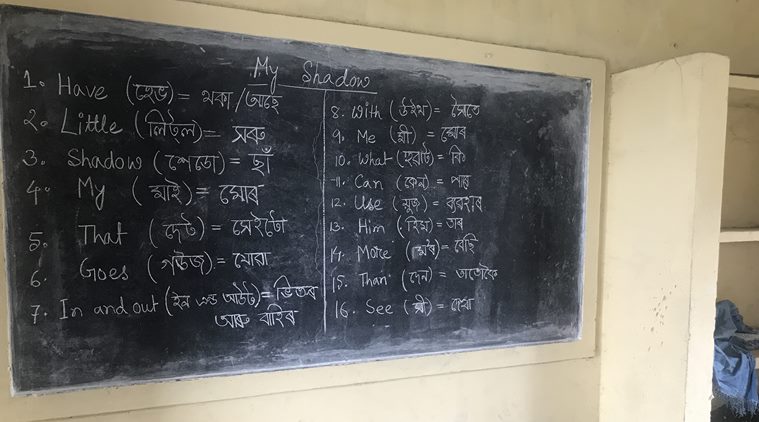 My Shadow
1. Have (হেভ) = থকা / আছে
2. Little (লিট্ল) = সৰু
3. Shadow (শেডো) = ছাঁ
4. My (মাই) = মোৰ
5. That (দেট) = সেইটো
6. Goes (গউজ) = যোৱা
7. In and out (ইন এণ্ড আউট) = ভিতৰ
আৰু বাহিৰ
8. With (উইথ) = সৈতে
9. Me (মী) = মোৰ
10. What (হোৱাট) = কি
11. Can (কেন) = পাৰ
12. Use (য়ুজ) = ব্যৱহাৰ
13. Him (হিম) = তাৰ
14. More (মোৰ) = বেছি
15. Than (দেন) = তাতোকৈ
16. See (ছী) = দেখা